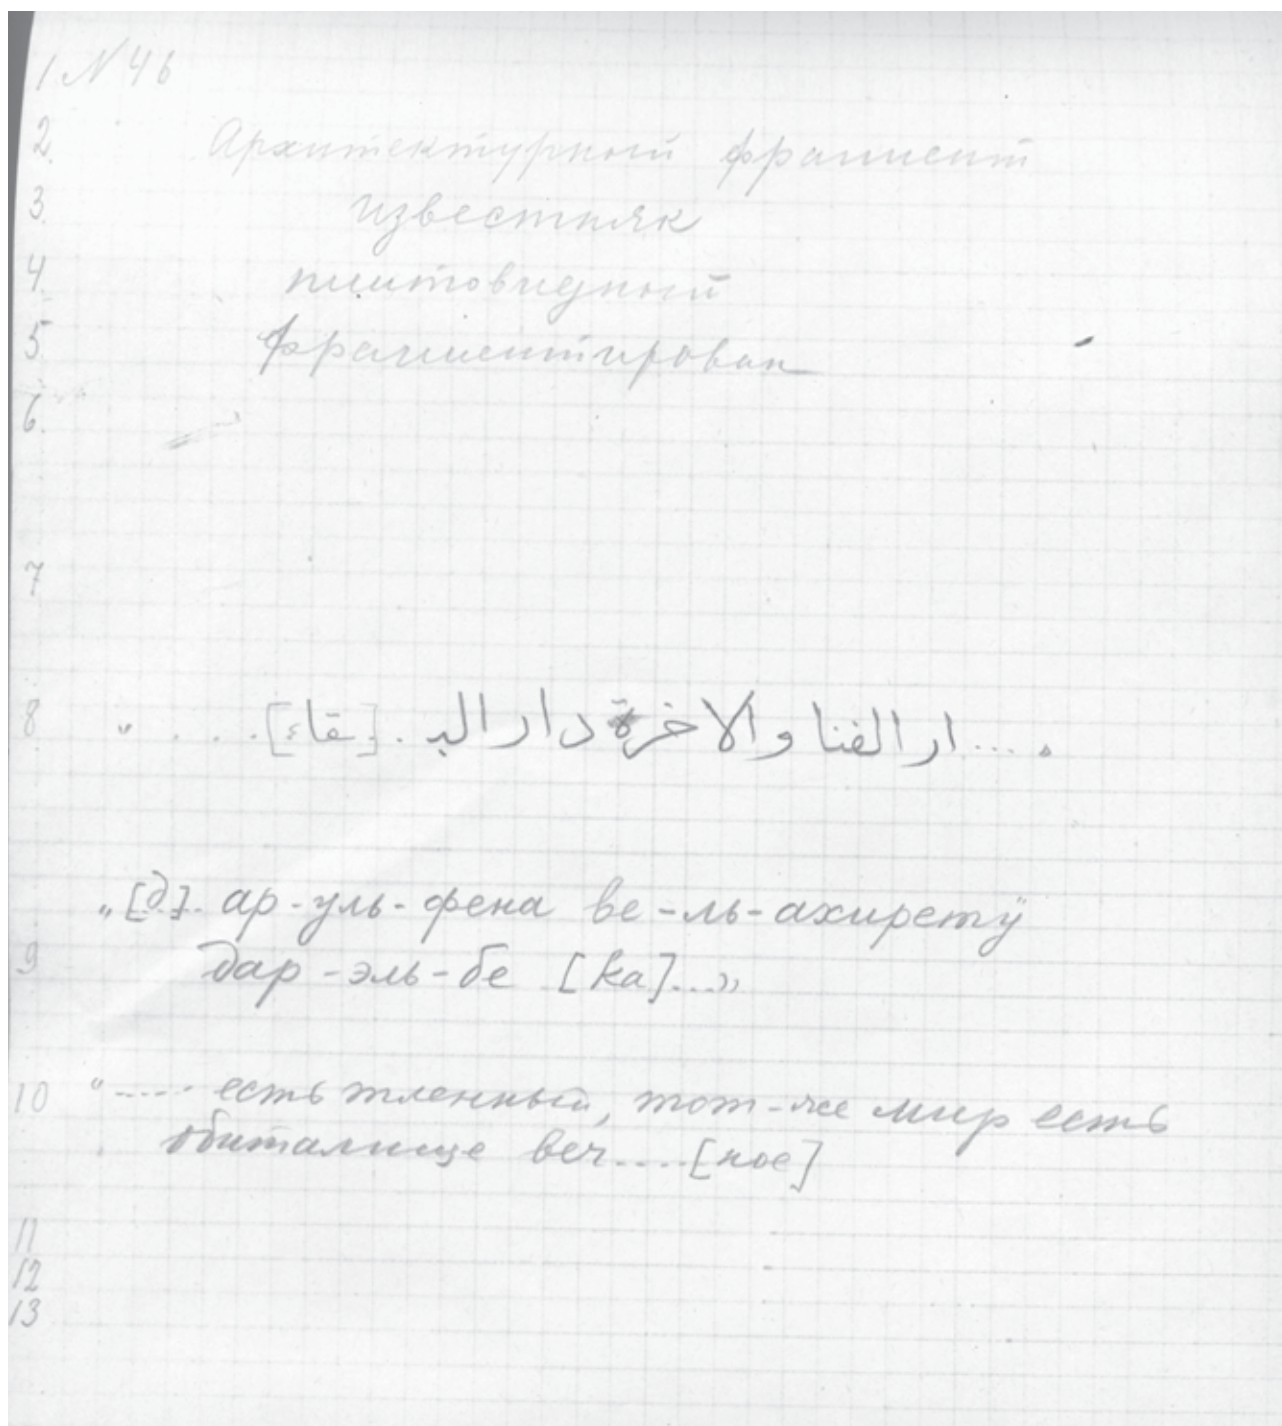 1 № 46
2. Архитектурный фрагмент
3. известняк
4. плитовидный
5. фрагментирован
6.
7
8 " .... ار الفنا والاخرة دار البـ . [ـقاء] . . . . "
„[д]. ар-уль-фена ве-ль-ахиретӱ
9 дар-эль-бе [ka]...”
10 "..... есть тленный, тот-же мир есть
обиталище веч.....[ное]
11
12
13